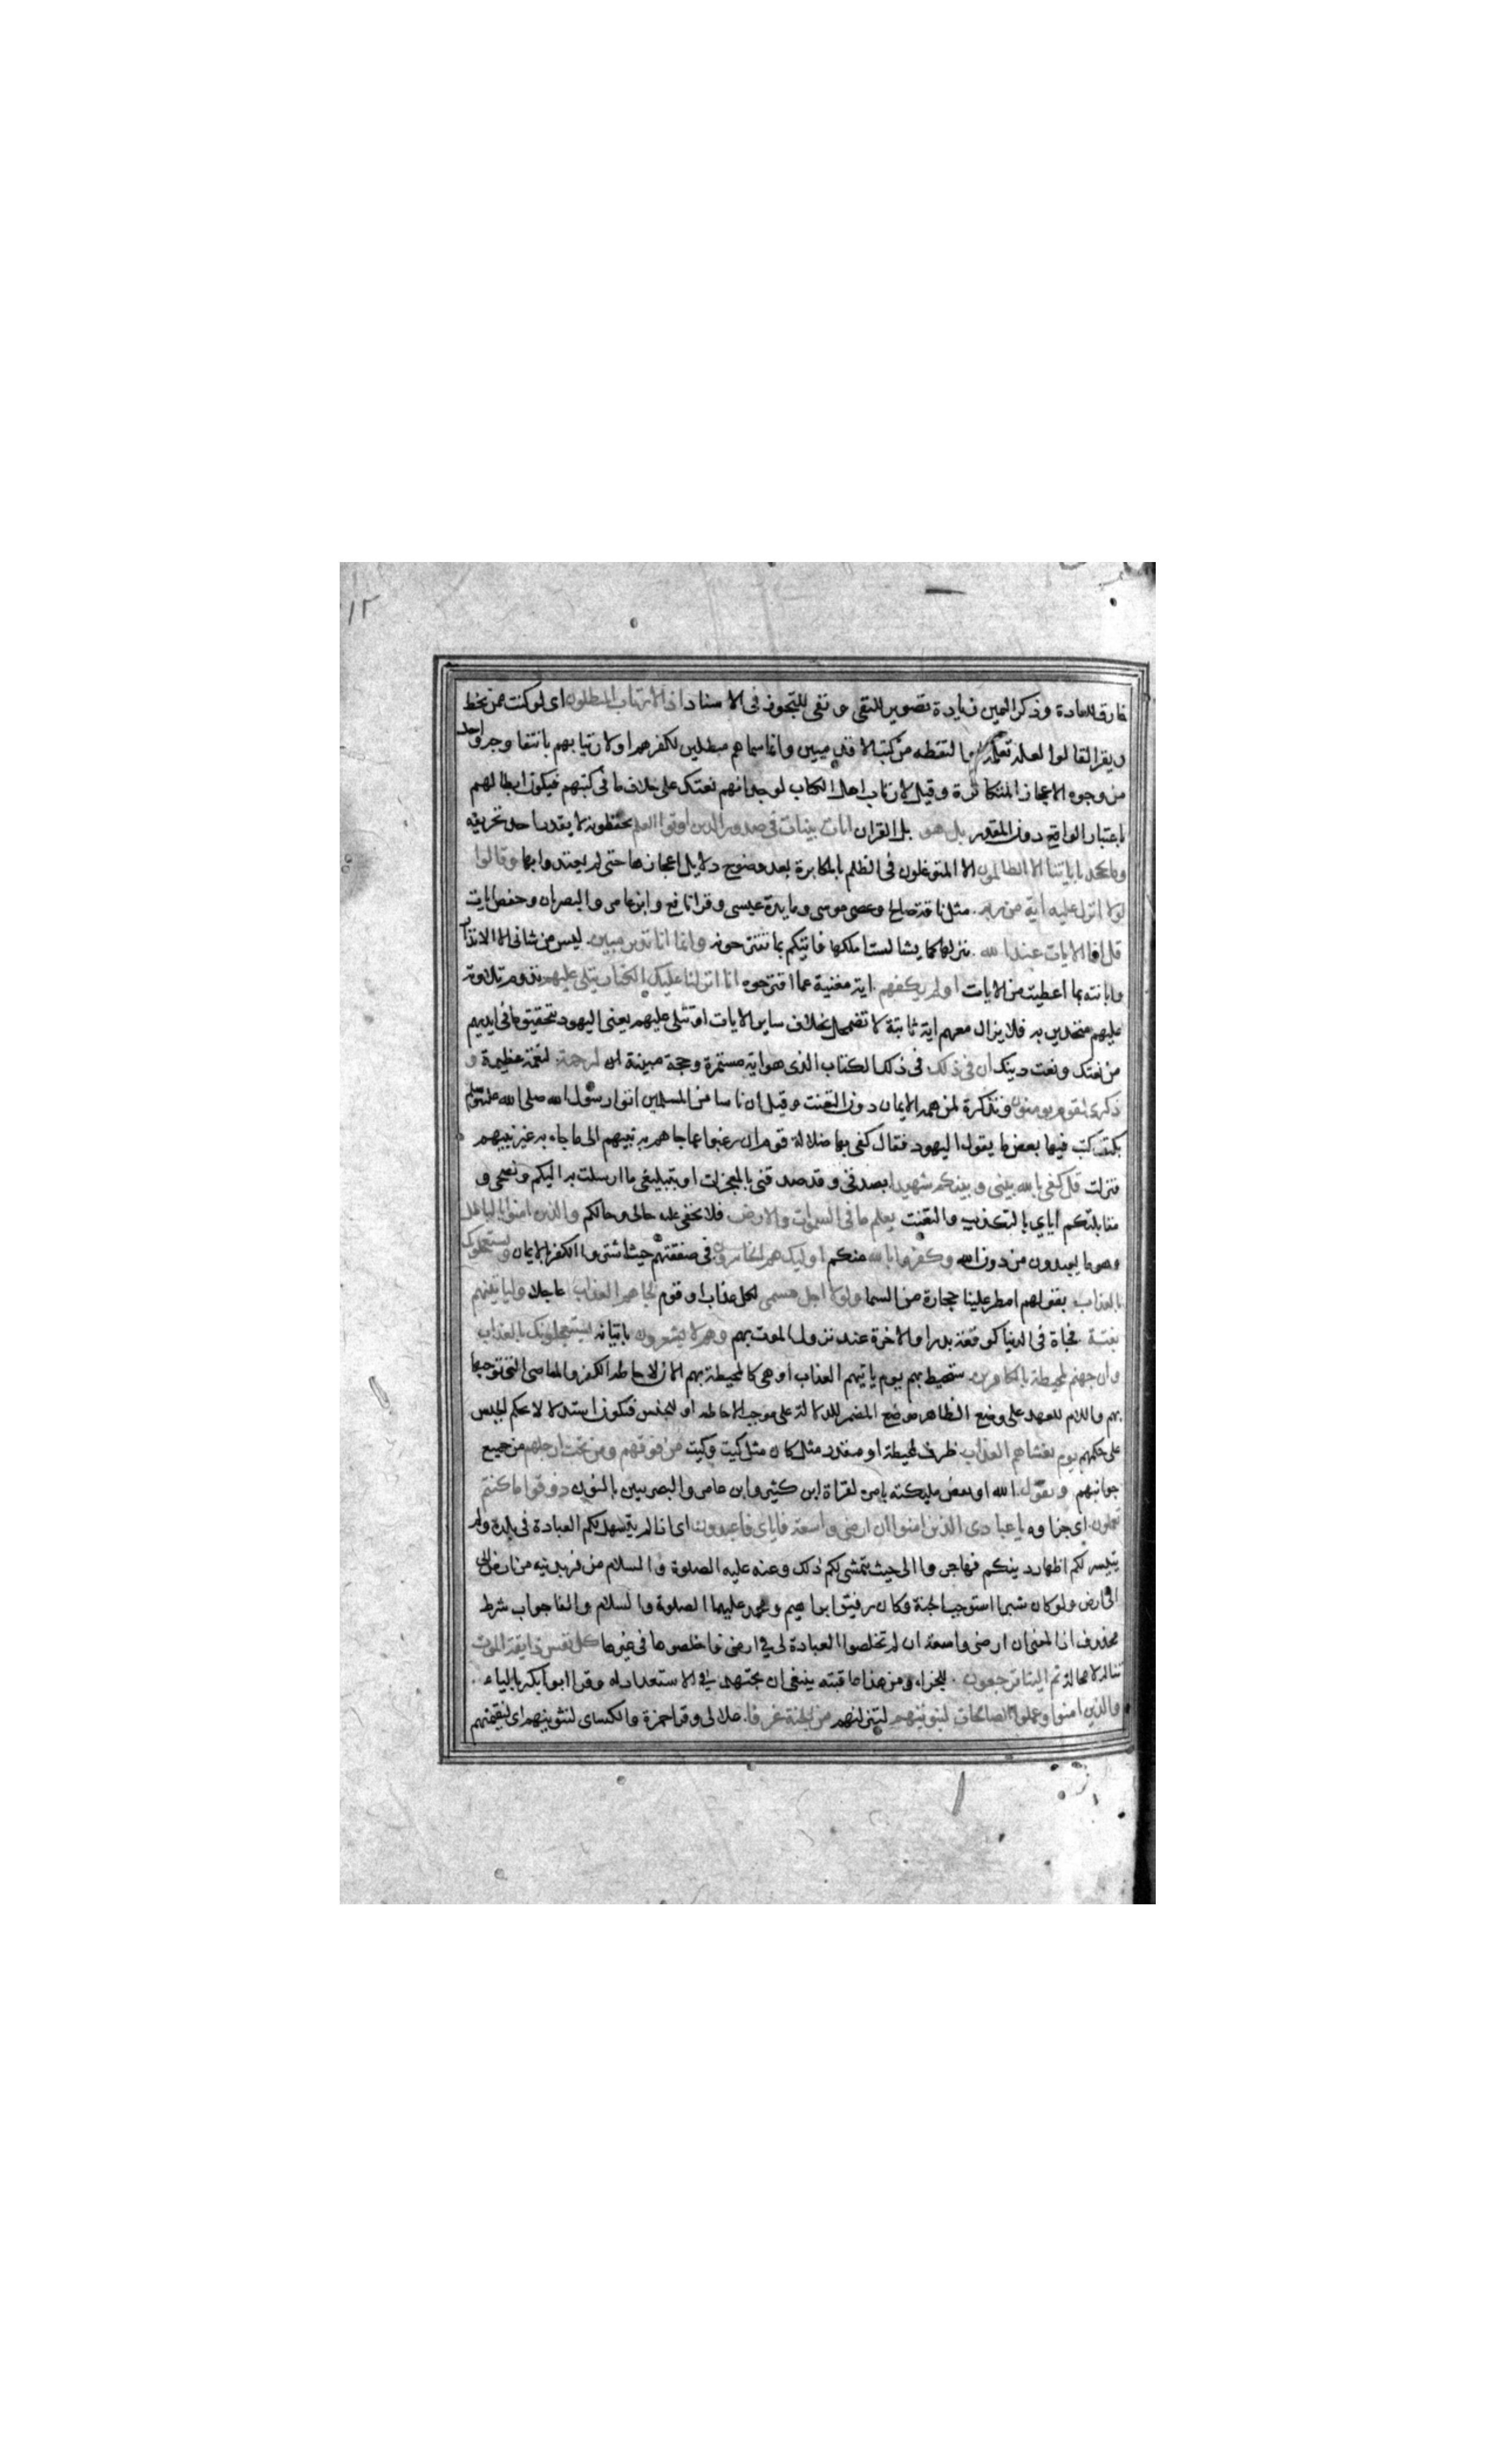 ١٢
خارق للعادة وذكر اليمين زيادة تصوير للنفى و نفى للتجوز فى الاسناد اذا لارتاب المبطلون اى لو كنت ممن يخط
ويقرا لقالوا لعله تعلمه او التقطه من كتب الاقدمين وانما سماهم مبطلين لكفرهم او لارتيابهم بانتفا وجه واحد
من وجوه الاعجاز المتكاثرة وقيل لارتاب اهل الكتاب لوجدانهم نعتك على خلاف ما فى كتبهم فيكون ابطالهم
باعتبار الواقع دون المقدر بل هو بل القران ايات بينات فى صدور الذين اوتوا العلم يحفظونه لا يقدر احد تحريفه
وما يجحد باياتنا الا الظالمون الا المتوغلون فى الظلم بالمكابرة بعد وضوح دلايل اعجازها حتى لم يعتدوا بها وقالوا
لولا انزل عليه اية من ربه مثل ناقة صالح وعصى موسى ومايدة عيسى وقرا نافع وابن عامر والبصريان وحفص ايات
قل انما الايات عند الله ينزلها كما يشا لست املكها فاتيكم بما تقترحونه وانما انا نذير مبين ليس من شانى الا الانذار
وابانته بما اعطيت من الايات اولم يكفهم اية مغنية عما اقترحوه انا انزلنا عليك الكتاب يتلى عليهم تدوم تلاوته
عليهم متحدين به فلا يزال معهم اية ثابتة لا تضمحل بخلاف ساير الايات او تتلى عليهم يعنى اليهود بتحقيق ما فى ايديهم
من نعتك ونعت دينك ان فى ذلك فى ذلك الكتاب الذى هو اية مستمرة وحجة مبينة لرحمة لنعمة عظيمة و
ذكرى لقوم يومنون وتذكرة لمن همه الايمان دون التعنت وقيل ان ناسا من المسلمين اتوا رسول الله صلى الله عليه وسلم
بكتف كتب فيها بعض ما يقول اليهود فقال كفى بها ضلالة قوم ان رغبوا عما جاهم به نبيهم الى ما جاء به غير نبيهم
فنزلت قل كفى بالله بينى وبينكم شهيدا بصدقى وقد صدقنى بالمعجزات او بتبليغى ما ارسلت به اليكم ونصحى و
مقابلتكم اياي بالتكذيب والتعنت يعلم ما فى السموات والارض فلا يخفى عليه حالى وحالكم والذين امنوا بالباطل
وهو ما يعبدون من دون الله وكفروا بالله منكم اوليك هم الخاسرون فى صفقتهم حيث اشتروا الكفر بالايمان ويستعجلونك
بالعذاب بقولهم امطر علينا حجارة من السما ولولا اجل مسمى لكل عذاب او قوم لجاهم العذاب عاجلا ولياتينهم
بغتة فجاة فى الدنيا كوقعة بدر او الاخرة عند نزول الموت بهم وهم لا يشعرون باتيانه يستعجلونك بالعذاب
وان جهنم لمحيطة بالكافرين ستحيط بهم يوم ياتيهم العذاب او هى كالمحيطة بهم الان لاحاطة الكفر والمعاصى التى توجبها
بهم واللام للعهد على وضع الظاهر موضع المضمر للدلالة على موجب الاحاطة او للجنس فيكون استدلالا بحكم الجنس
على حكمهم يوم يغشاهم العذاب ظرف لمحيطة او مقدر مثل كان مثل كيت وكيت من فوقهم ومن تحت ارجلهم من جميع
جوانبهم ويقول الله او بعض مليكته بامره لقراة ابن كثير وابن عامر والبصريين بالنون ذوقوا ما كنتم
تعملون اى جزاوه يا عبادى الذين امنوا ان ارضى واسعة فاياى فاعبدون اى اذا لم يتسهل لكم العبادة فى بلدة ولم
يتيسر لكم اظهار دينكم فهاجروا الى حيث يتمشى لكم ذلك وعنه عليه الصلوة والسلام من فر بدينه من ارض الى
ارض ولو كان شبرا استوجب الجنة وكان رفيق ابراهيم ومحمد عليهما الصلوة والسلام والفا جواب شرط
محذوف اذ المعنى ان ارضى واسعة ان لم تخلصوا العبادة لى فى ارض فاخلصوها فى غيرها كل نفس ذايقة الموت
تناله لا محالة ثم الينا ترجعون للجزاء ومن هذا عاقبته ينبغى ان يجتهد فى الاستعداد له وقرا ابو بكر بالياء
والذين امنوا وعملوا الصالحات لنبوينهم لننزلنهم من الجنة غرفا علالى وقرا حمزة والكساى لنثوينهم اى لنقيمنهم